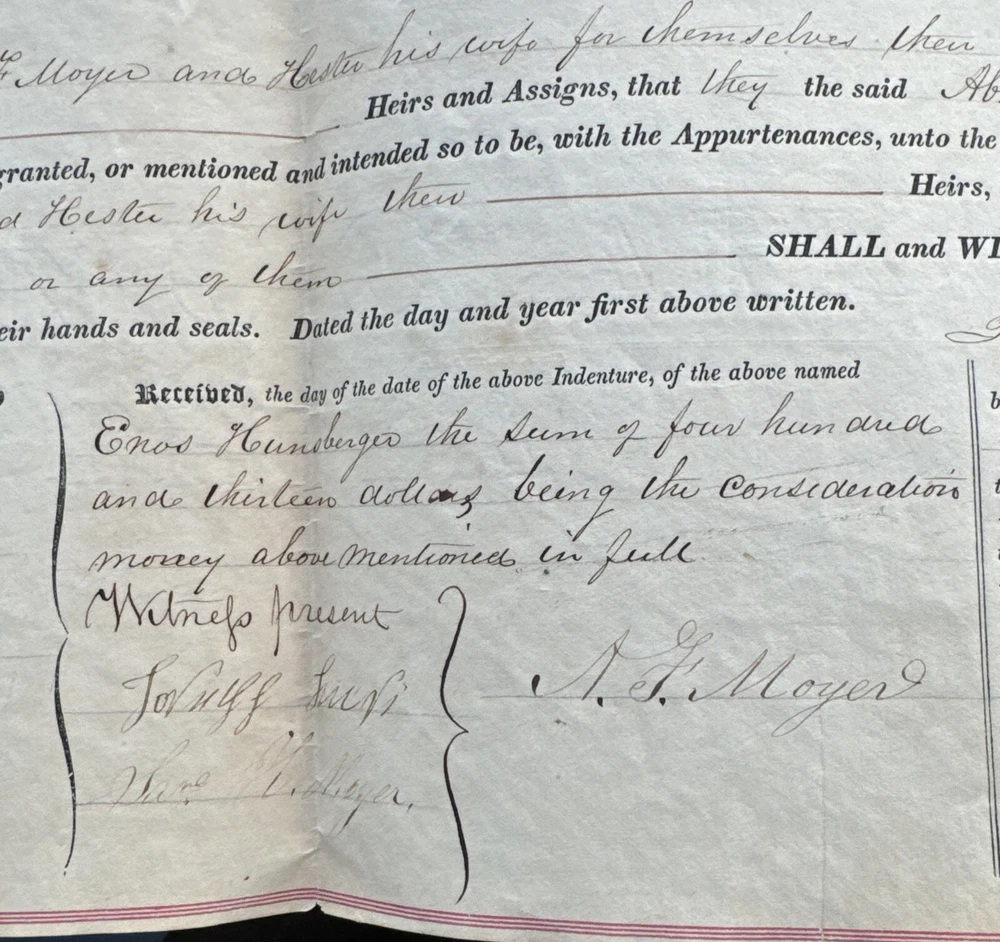 F Moyer and Hester his wife for themselves their
Heirs and Assigns, that they the said Ab
granted, or mentioned and intended so to be, with the Appurtenances, unto the
d Hester his wife their Heirs,
or any of them SHALL and WI
eir hands and seals. Dated the day and year first above written.
Received, the day of the date of the above Indenture, of the above named
Enos Hunsberger the sum of four hundred
and thirteen dollars being the consideration
money above mentioned in full
Witness present
A. F. Moyer
Moyer.